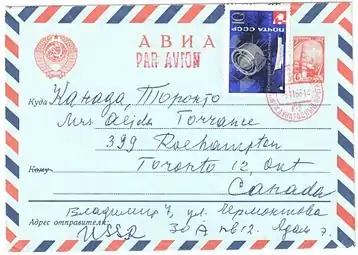 АВИА
PAR AVION
ПОЧТА СССР
Куда Канада, Торонто
Mrs Aejda Torrance
399 Roehampton
Toronto 12, Ont
Canada
Адрес отправителя: Владимир 4, ул. Лермонтова
USSR 30А кв 12.